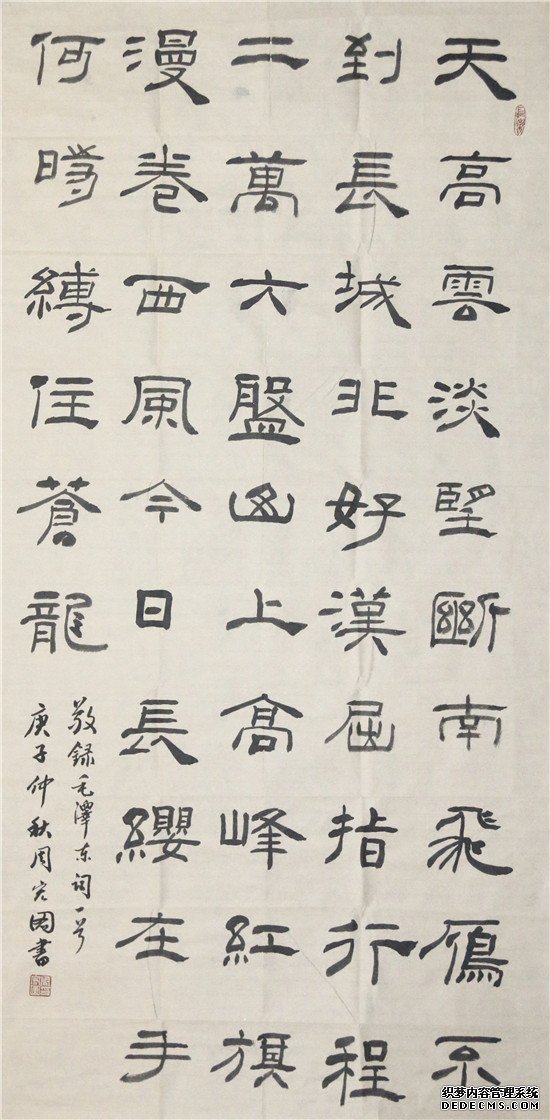 天高雲淡望斷南飛鴈不
到長城非好漢屈指行程
二萬六盤山上高峰紅旗
漫卷西風今日長纓在手
何時縛住蒼龍
敬録毛澤东詞一首
庚子仲秋周国書
织梦内容管理系统
DEDECMS.COM